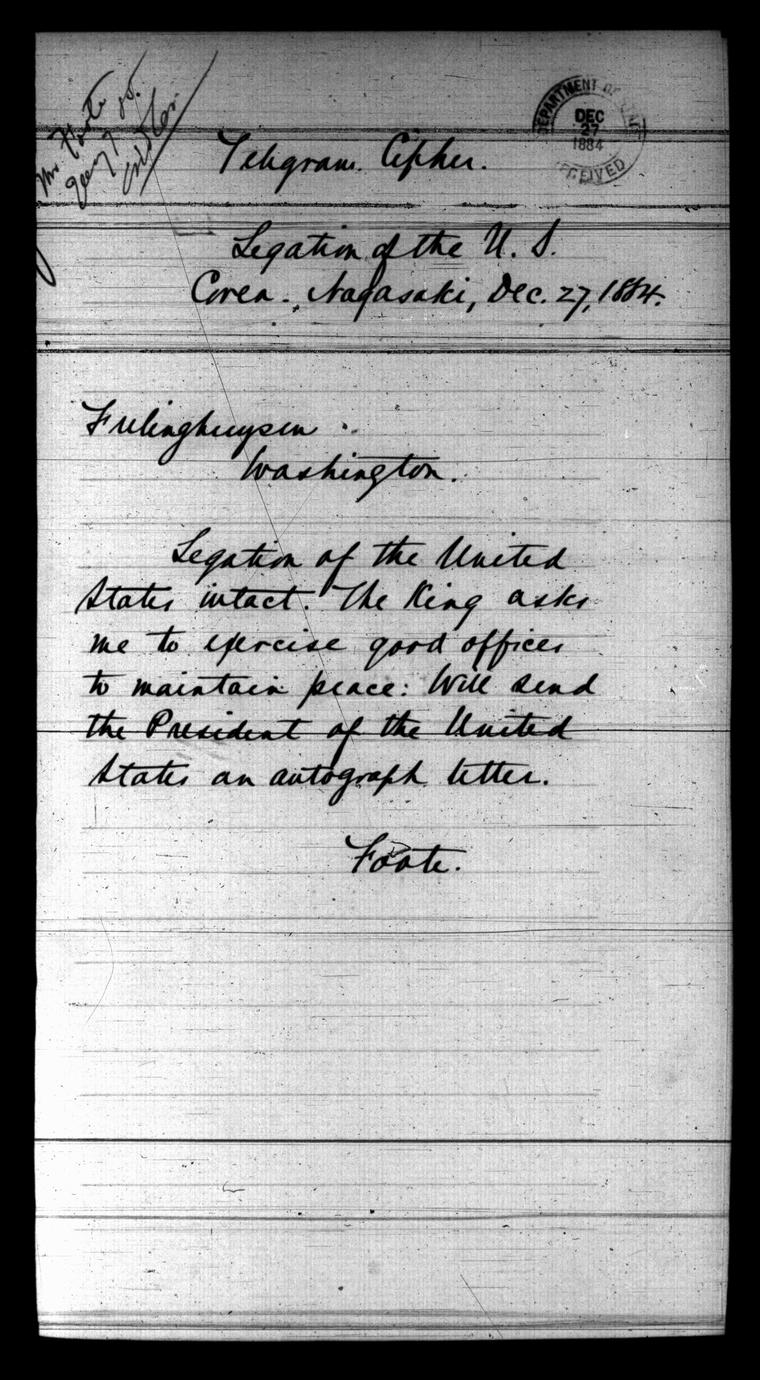 Mr Foote
Telegram. Cipher.
DEPARTMENT OF STATE
DEC
27
1884
RECEIVED
Legation of the U. S.
Corea. Nagasaki, Dec. 27, 1884.
Frelinghuysen.
Washington.
Legation of the United
States intact. The King asks
me to exercise good offices
to maintain peace: Will send
the President of the United
States an autograph letter.
Foote.